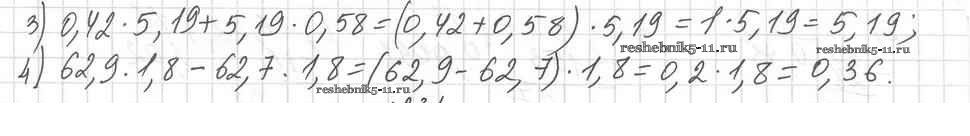 3) 0,42 · 5,19 + 5,19 · 0,58 = (0,42 + 0,58) · 5,19 = 1 · 5,19 = 5,19;
reshebnik5-11.ru
reshebnik5-11.ru
4) 62,9 · 1,8 − 62,7 · 1,8 = (62,9 − 62,7) · 1,8 = 0,2 · 1,8 = 0,36.
reshebnik5-11.ru